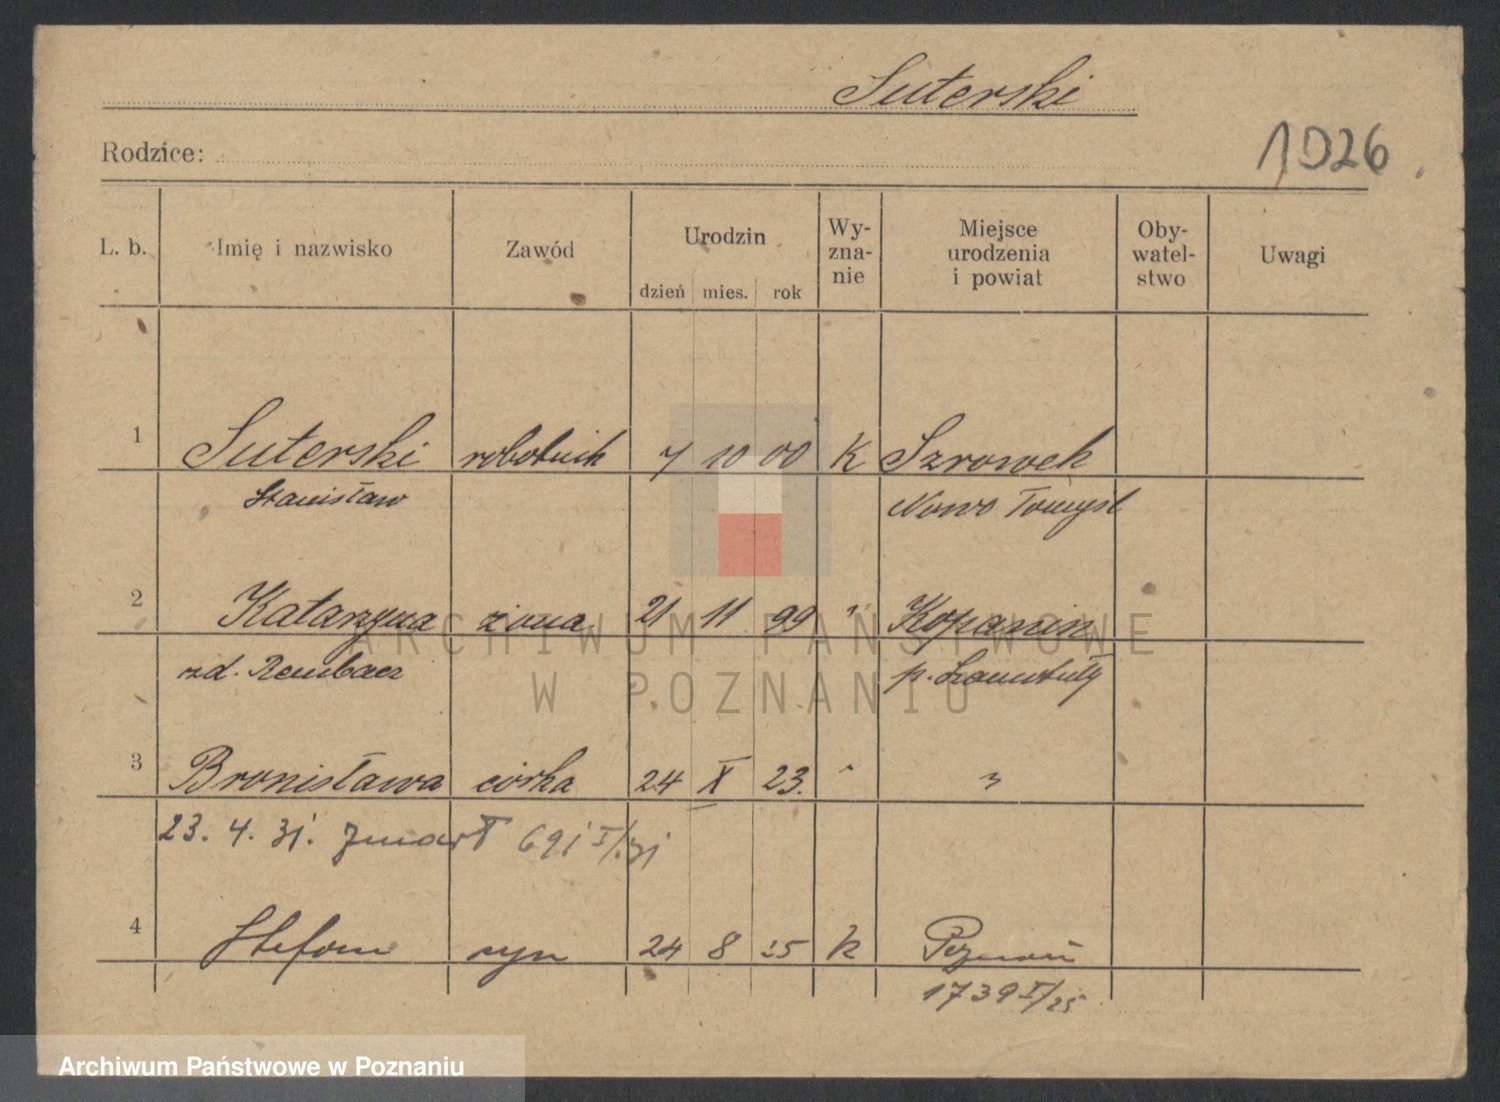 Suterski
Rodzice:
1926
L. b. Imię i nazwisko Zawód Urodzin dzień mies. rok Wy-zna-nie Miejsce urodzenia i powiat Oby-watel-stwo Uwagi
1 Suterski robotnik 7 10 00 K Szrowek
Stanisław Nowo Tomysl
2 Katarzyna żona 21 11 99 " Kopanin
zd. Rembacz p. Szamotuły
3 Bronisława córka 24 X 23. " "
23. 4. 31. zmarł 691 I/31
4 Stefan syn 24 8 25 k Poznań
1739 I/25
ARCHIWUM PAŃSTWOWE
W POZNANIU
Archiwum Państwowe w Poznaniu